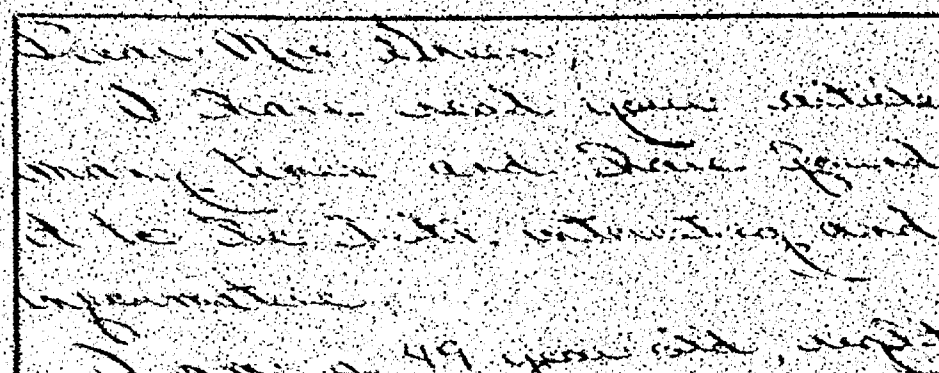 Dear Mrs
I have read your article
many times and have found
it to be interesting and
informative.
I am 49 years old,